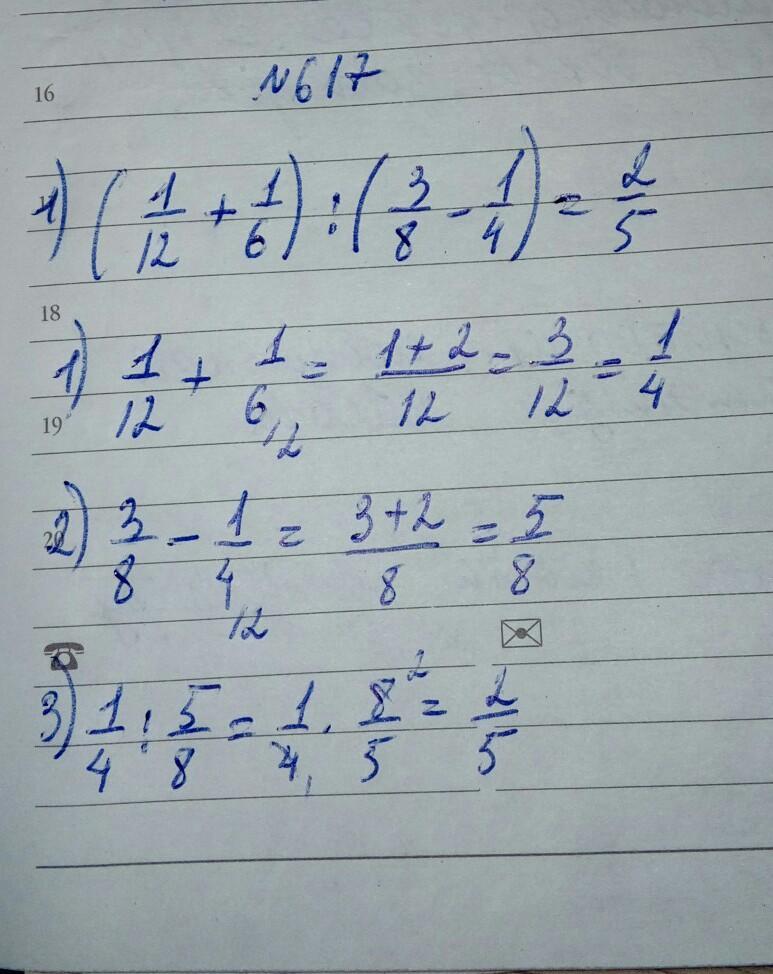 16
№617
1) (1/12 + 1/6) : (3/8 - 1/4) = 2/5
18
1) 1/12 + 1/6 = 1+2/12 = 3/12 = 1/4
19
12
2) 3/8 - 1/4 = 3+2/8 = 5/8
12
3) 1/4 : 5/8 = 1/4 · 8/5 ² = 2/5
1